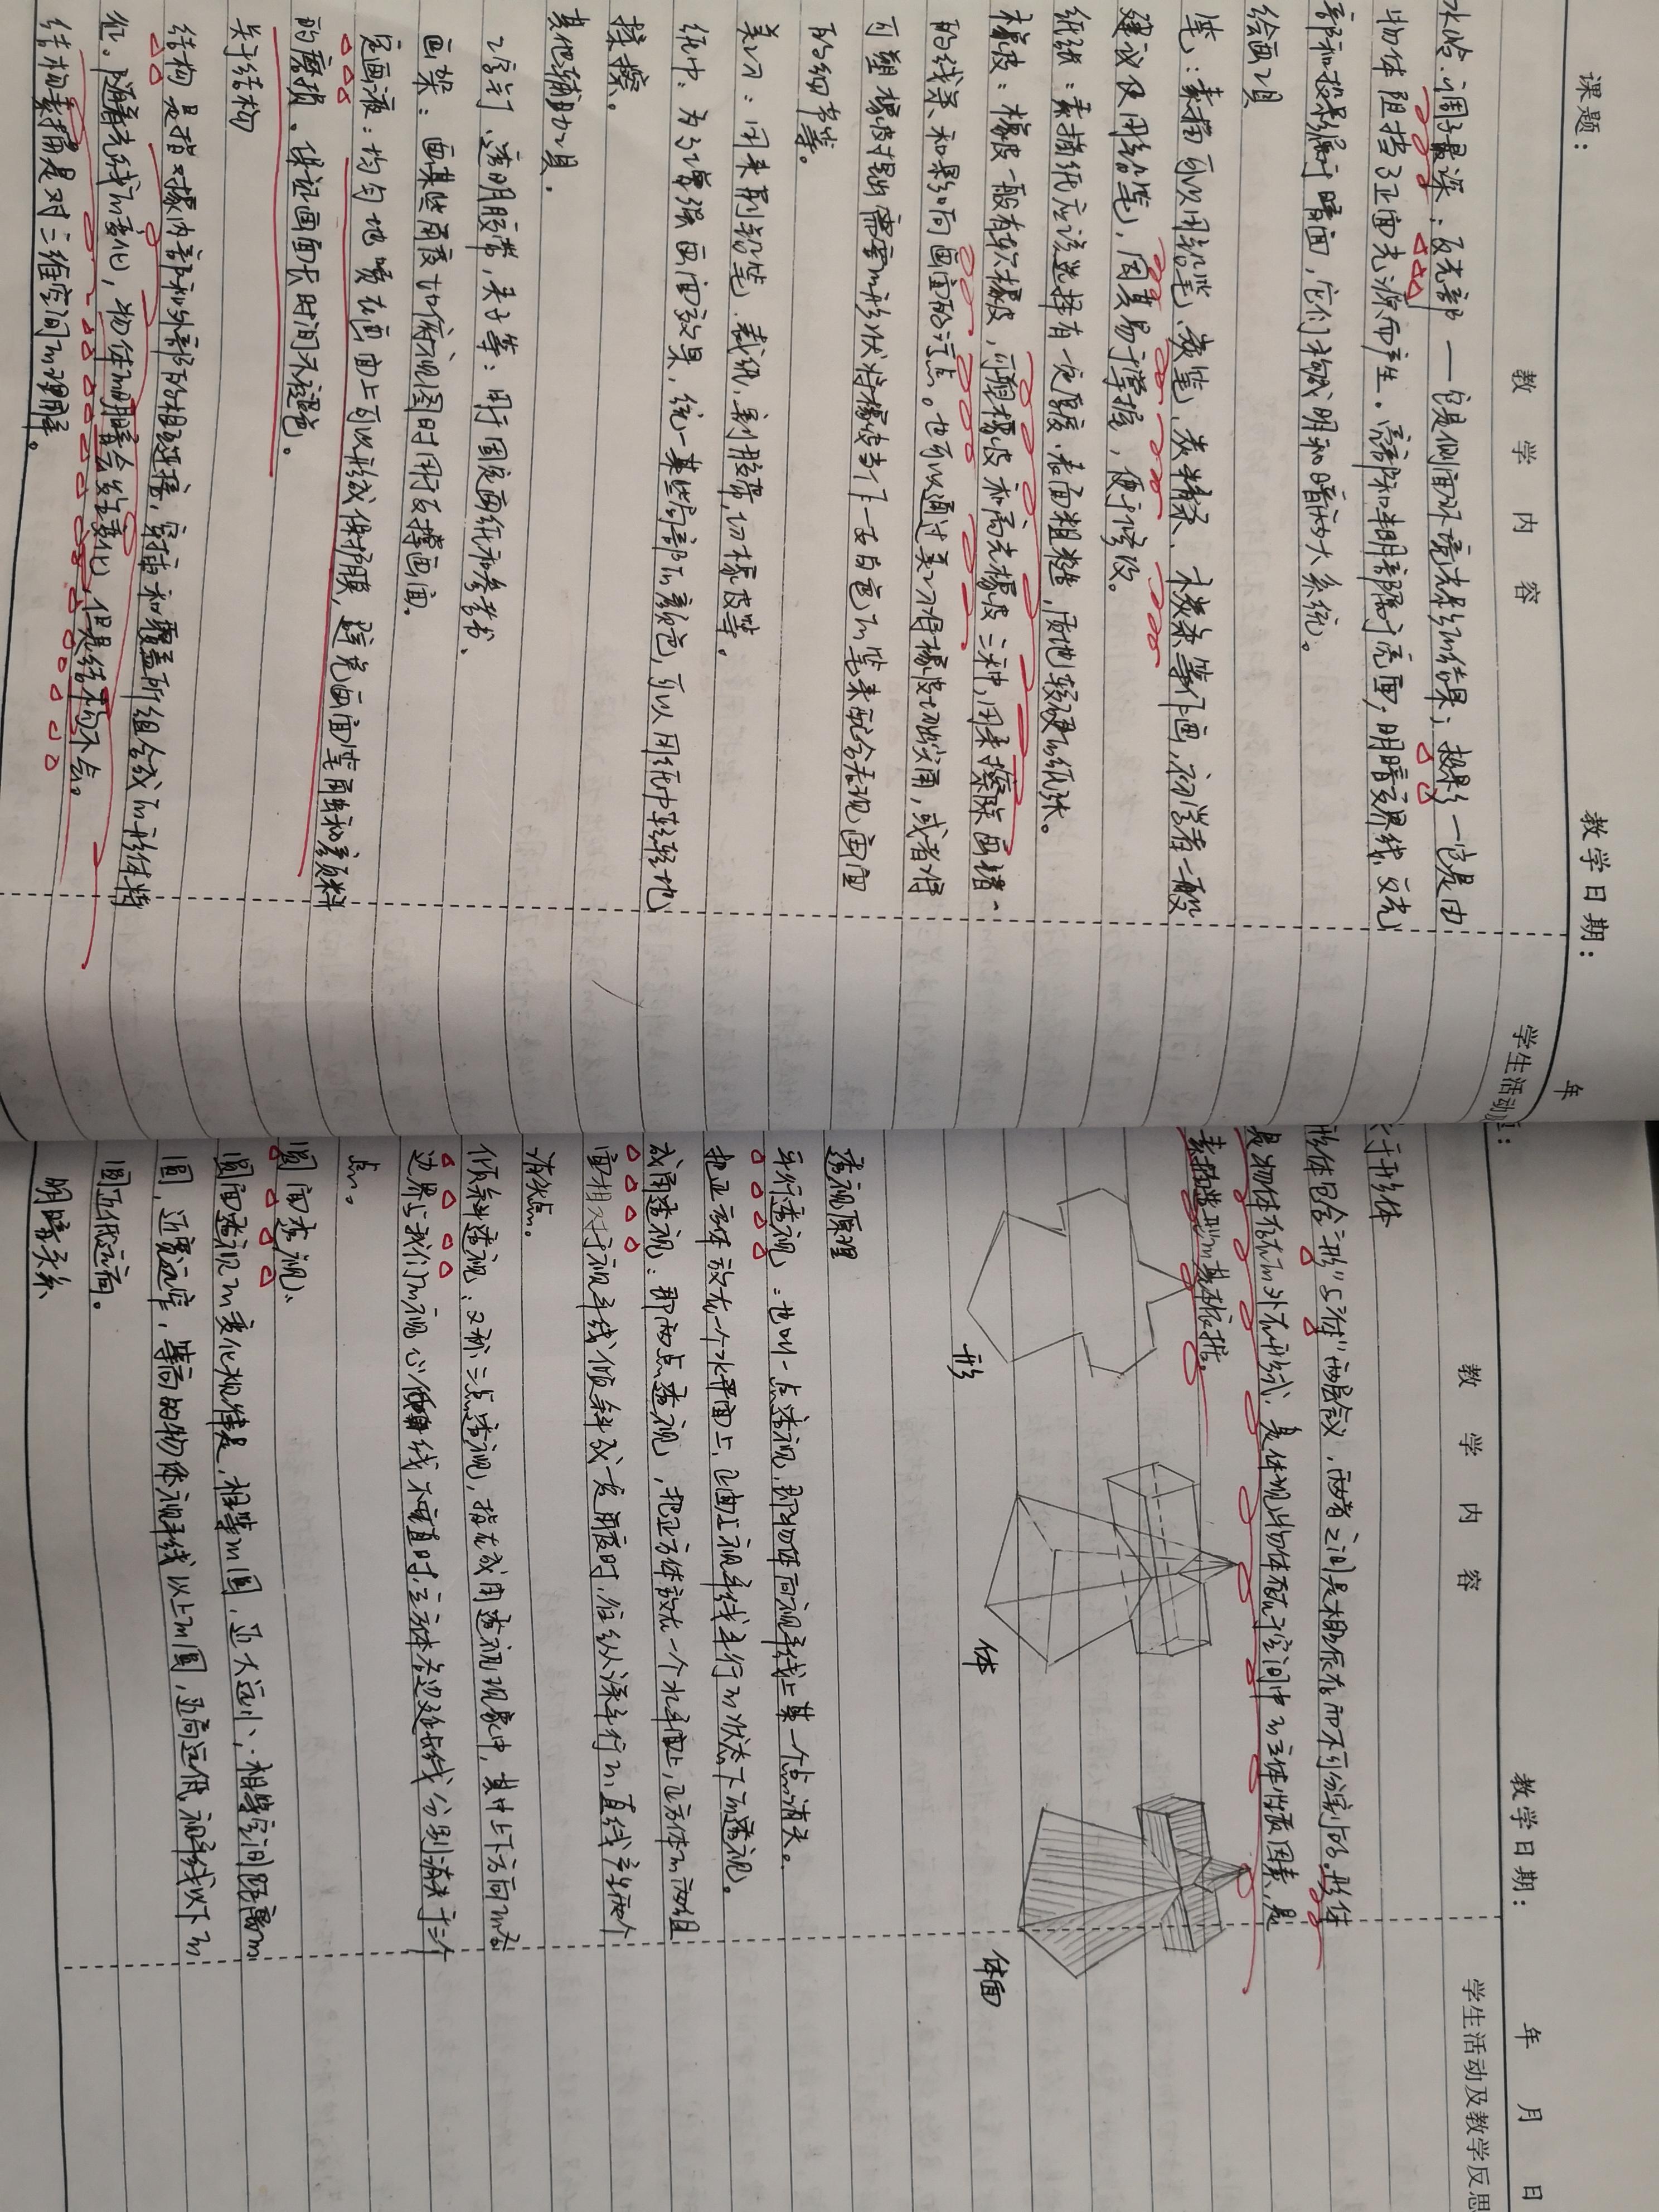 课题：
教学日期：
年
教 学 内 容
学生活动
调最深；反光部——它是侧面环境光影的结果；投影——它是由
物体阻挡了正面光源而产生。亮部和半明部属于亮面，明暗交界线、反光
部和投影属于暗面，它们构成明和暗两大系统。
绘画工具
笔：素描可以用铅笔、炭笔、炭精条、木炭条等作画，初学者一般
建议使用铅笔，因其易于掌握，便于修改。
纸张：素描纸应该选择有一定厚度、表面粗糙、质地较硬的纸张。
橡皮：橡皮一般有软橡皮、可塑橡皮和高光橡皮三种，用来擦除画错
的线条和影响画面的污点。也可以通过美工刀将橡皮切成尖角，或者将
可塑橡皮捏出需要的形状将橡皮当作一支白色的笔来配合表现画面
的细节等。
美工刀：用来削铅笔、裁纸、割胶带、切橡皮等。
纸巾：为了增强画面效果，统一某些局部的颜色，可以用纸巾轻轻地
揉擦。
其他辅助工具。
工字钉、透明胶带、夹子等：用于固定画纸和参考书、
画架：画某些角度如俯视图时用于支撑画面。
定画液：均匀地喷在画面上可以形成保护膜，避免画面笔屑和颜料
的磨损。保证画面长时间不褪色。
关于结构
结构是指对象内部和外部的相互连接、穿插和覆盖所组合成的形体特
征。随着光线的变化，物体的明暗会发生变化，但是结构不会。
结构素描是对三维空间的理解。
教学日期：
年 月 日
教 学 内 容
学生活动及教学反思
于形体
形体包含“形”与“体”两层含义，两者之间是相互依存而不可分割的。形体
是物体存在的外在形式，是体现物体存在于空间中的立体性质因素，是
素描造型的基本依据。
形
体
体面
透视原理
平行透视：也叫一点透视，即物体向视平线上某一个点消失。
把正方体放在一个水平面上，正面与视平线平行的状态下的透视。
成角透视：即两点透视，把正方体放在一个水平面上，正方体的两组
面相对于视平线倾斜成一定角度时，往纵深平行的直线产生两个
消失点。
倾斜透视：又称三点透视，指在成角透视现象中，其中上下方向的
边界与我们的视心线不垂直时，立方体各边延长线分别消失于三个
点。
圆面透视：
圆面透视的变化规律是，相等的圆，近大远小、相等空间距离的
圆，近宽远窄，等高的物体视平线以上的圆，近高远低，视平线以下的
圆近低远高。
明暗关系